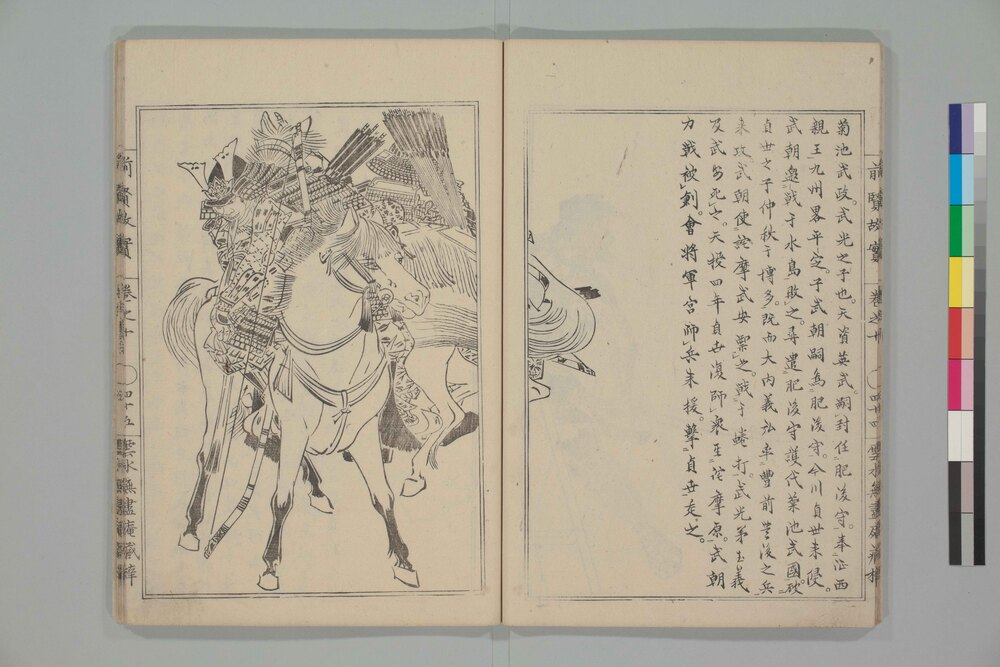 菊池武政武光之子也。天資英武。嗣封任肥後守。奉征西
親王九州畧平定。子武朝嗣為肥後守。今川貞世来侵。
武朝邀戦于水島敗之。尋遣肥後守護代菊池武國破
貞世之子仲秋于博多。既而大内義弘率豊前豊後之兵
来攻武朝使詫摩武安禦之。戦于蜷打。武光弟武義
及武安死之。天授四年貞世復師衆至詫摩原。武朝
力戦被創。會将軍宮師兵来援。撃貞世走之。
前賢故實
巻之十
四十四
前賢故實
巻之十
四十五
雲水無盡庵藏梓